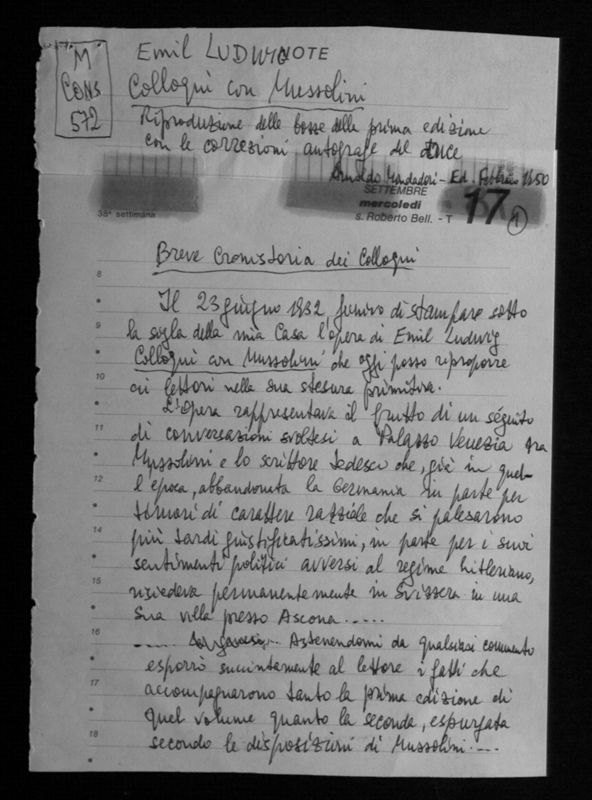 M
CONS
572
Emil LUDWIG NOTE
Colloqui con Mussolini
Riproduzione delle bozze della prima edizione
con le correzioni autografe del duce
Arnoldo Mondadori - Ed. Febbraio 1950
SETTEMBRE
mercoledì
38ª settimana
s. Roberto Bell. - T
17
1
Breve Cronistoria dei Colloqui
8
Il 23 giugno 1932, finivo di stampare sotto
9
la sigla della mia Casa l'opera di Emil Ludwig
Colloqui con Mussolini che oggi posso riproporre
10
ai lettori nella sua stesura primitiva.
L'Opera rappresentava il frutto di un séguito
11
di conversazioni svoltesi a Palazzo Venezia tra
Mussolini e lo scrittore tedesco che, già in quel-
12
l'epoca, abbandonata la Germania in parte per
timori di carattere razziale che si palesarono
14
più tardi giustificatissimi, in parte per i suoi
sentimenti politici avversi al regime hitleriano,
15
risiedeva permanentemente in Svizzera in una
sua villa presso Ascona .....
16
..... Astenendomi da qualsiasi commento
esporrò succintamente al lettore i fatti che
17
accompagnarono tanto la prima edizione di
quel volume quanto la seconda, espurgata
18
secondo le disposizioni di Mussolini ....